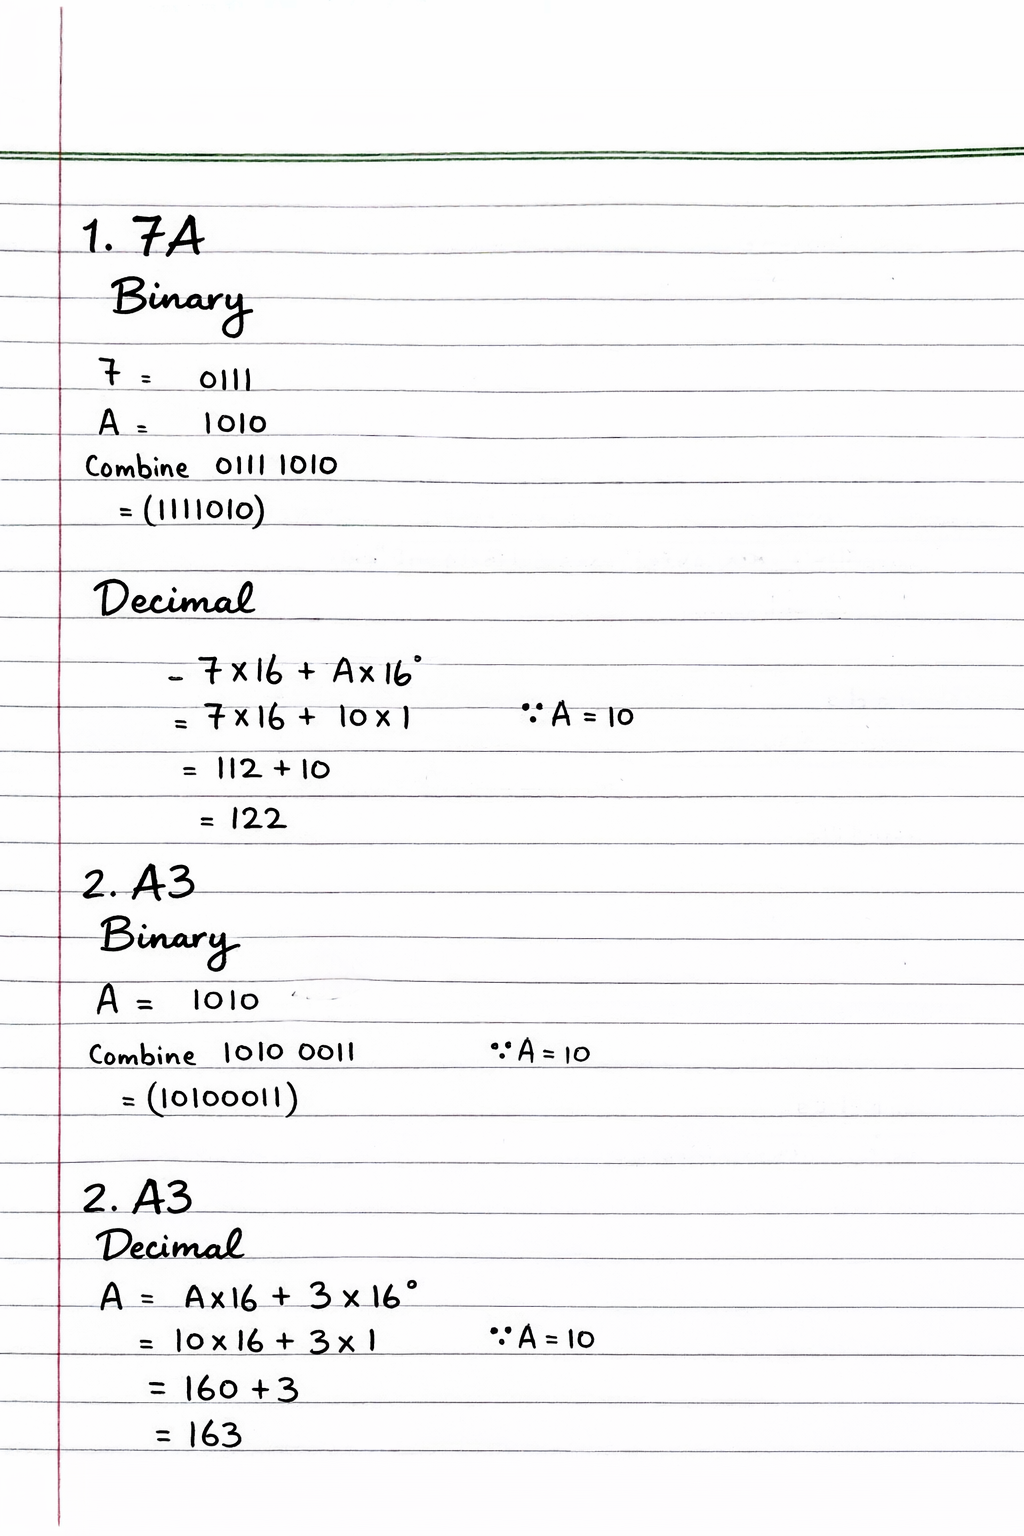 1. 7A
Binary
7 = 0111
A = 1010
Combine 0111 1010
= (1111010)
Decimal
- 7 × 16 + A × 16°
= 7 × 16 + 10 × 1 ∵ A = 10
= 112 + 10
= 122
2. A3
Binary
A = 1010
Combine 1010 0011 ∵ A = 10
= (10100011)
2. A3
Decimal
A = A × 16 + 3 × 16°
= 10 × 16 + 3 × 1 ∵ A = 10
= 160 + 3
= 163